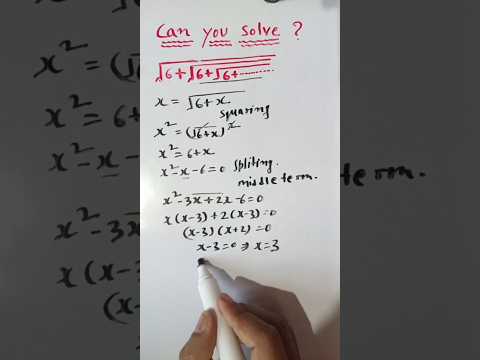 Can you solve ?
√6+√6+√6+..........
x = √6+x
squaring
x² = (√6+x)²
x² = 6+x
x²-x-6=0 spliting.
middle term.
x²-3x+2x-6=0
x(x-3)+2(x-3)=0
(x-3)(x+2)=0
x-3=0⇒x=3